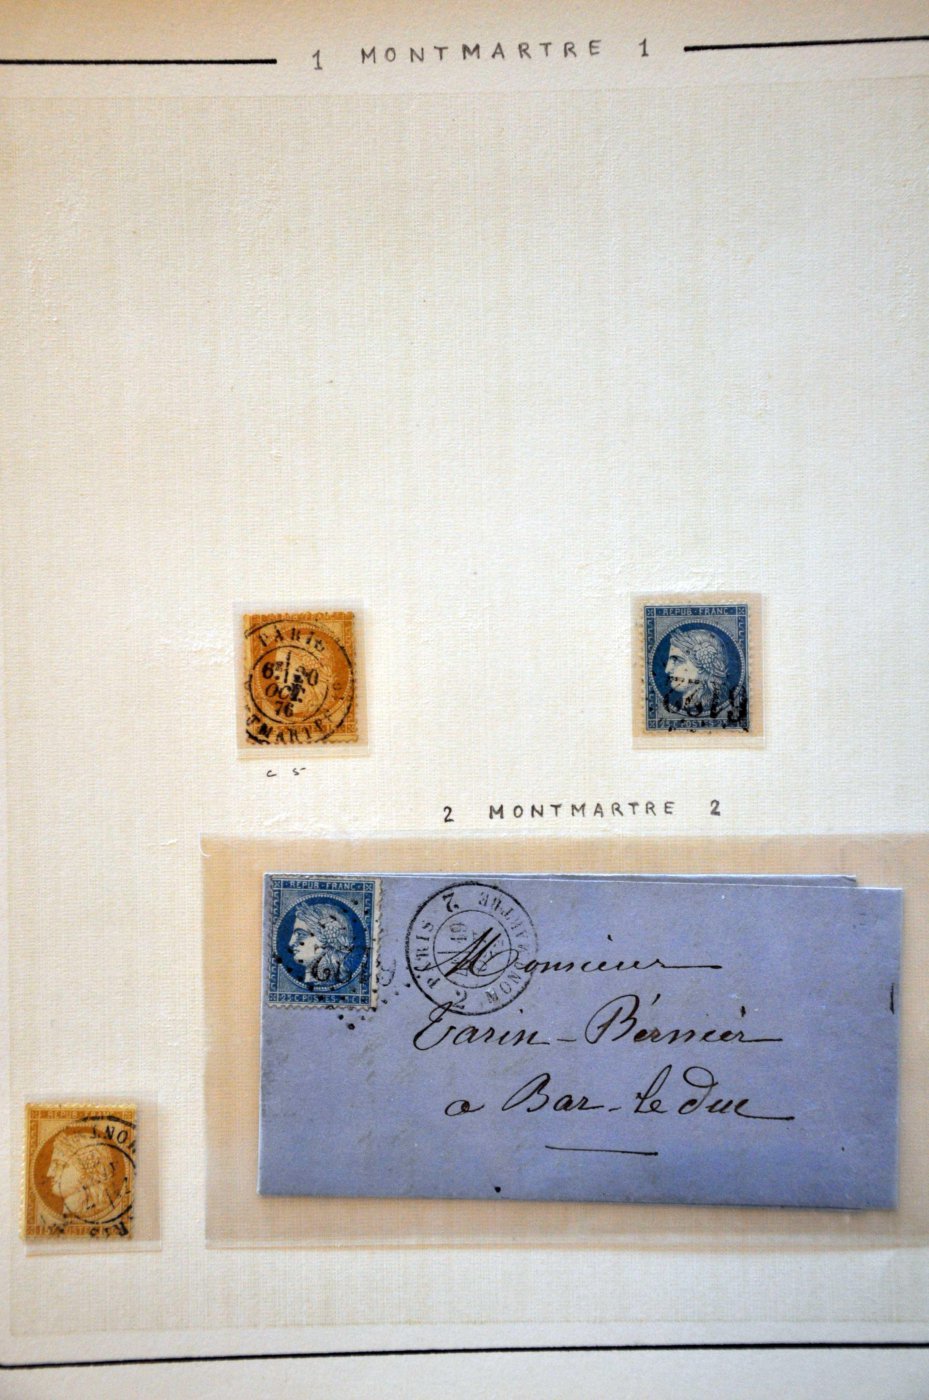 1 MONTMARTRE 1
PARIS
20
OCT.
76
REPUB FRANC
25 C POSTES
c 5
2 MONTMARTRE 2
REPUB FRANC
25 C POSTES
PARIS 2 MONTMARTRE 2
19
Monsieur
Varin-Bernier
a Bar-le Duc
REPUB FRANC
MONT